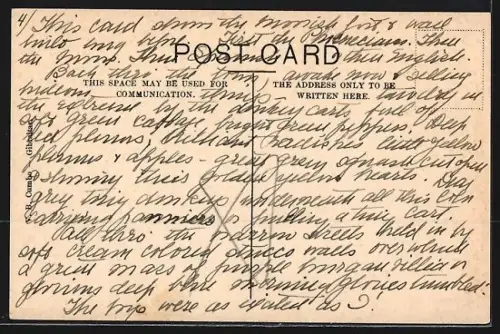 4/ This card shows the Moorish fort & wall
built long before. First the Phoenicians. Then
the Moors. Then Spanish then English.
POST CARD
THIS SPACE MAY BE USED FOR
COMMUNICATION.
THE ADDRESS ONLY TO BE
WRITTEN HERE.
Back thro. the town awake now & selling
things
the extreme in the donkey carts full of
soft green cabbage, bright green peppers. Deep
red plums, brilliant radishes little yellow
plums & apples - great green squash cut open
& showing their golden yellow hearts. Tiny
grey tiny donkeys underneath all this
carrying panniers or pulling a tiny cart.
All thro. the narrow streets held in by
soft cream colored stucco walls over which
a great mass of purple bougainvillia or
glorious deep blue morning glories tumbled.
The trip were as excited as I.
B. Cumbo - Gibraltar